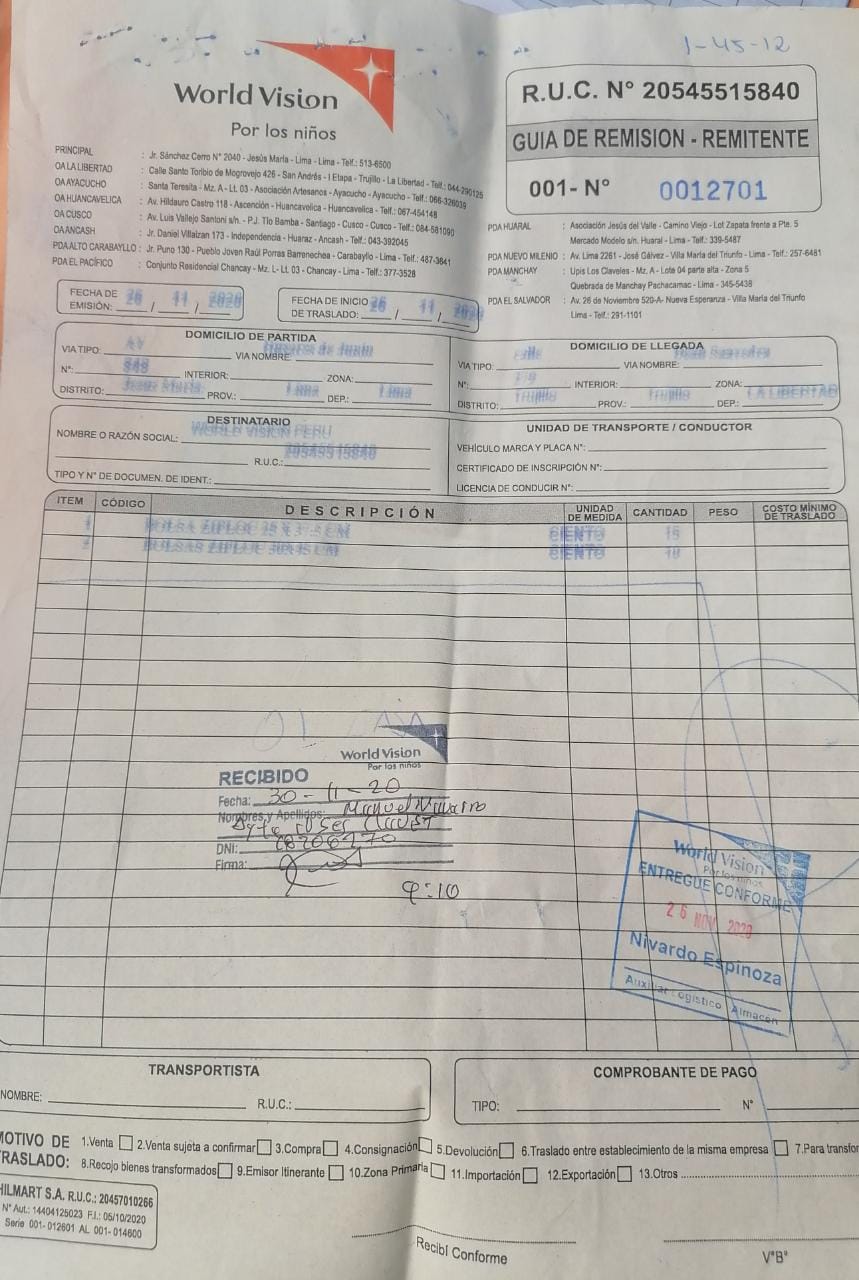 1-45-12
World Vision
Por los niños
R.U.C. N° 20545515840
GUIA DE REMISION - REMITENTE
001- N° 0012701
PRINCIPAL : Jr. Sánchez Cerro N° 2040 - Jesús María - Lima - Lima - Telf.: 513-6500
OA LA LIBERTAD : Calle Santo Toribio de Mogrovejo 426 - San Andrés - I Etapa - Trujillo - La Libertad - Telf.: 044-290125
OA AYACUCHO : Santa Teresita - Mz. A - Lt. 03 - Asociación Artesanos - Ayacucho - Ayacucho - Telf.: 066-326039
OA HUANCAVELICA : Av. Hildauro Castro 118 - Ascención - Huancavelica - Huancavelica - Telf.: 067-454148
OA CUSCO : Av. Luis Vallejo Santoni s/n. - P.J. Tío Bamba - Santiago - Cusco - Cusco - Telf.: 084-581090
OA ANCASH : Jr. Daniel Villaizan 173 - Independencia - Huaraz - Ancash - Telf.: 043-392045
PDA ALTO CARABAYLLO : Jr. Puno 130 - Pueblo Joven Raúl Porras Barrenechea - Carabaylio - Lima - Telf.: 487-3641
PDA EL PACÍFICO : Conjunto Residencial Chancay - Mz. L- Lt. 03 - Chancay - Lima - Telf.: 377-3528
PDA HUARAL : Asociación Jesús del Valle - Camino Viejo - Lot Zapata frente a Pte. 5
Mercado Modelo s/n. Huaral - Lima - Telf.: 339-5487
PDA NUEVO MILENIO : Av. Lima 2261 - José Gálvez - Villa María del Triunfo - Lima - Telf.: 257-6481
PDA MANCHAY : Upis Los Claveles - Mz. A - Lote 04 parte alta - Zona 5
Quebrada de Manchay Pachacamac - Lima - 345-5438
PDA EL SALVADOR : Av. 26 de Noviembre 520-A- Nueva Esperanza - Villa María del Triunfo
Lima - Telf.: 291-1101
FECHA DE EMISIÓN: 26 / 11 / 2020
FECHA DE INICIO DE TRASLADO: 26 / 11 / 2020
DOMICILIO DE PARTIDA
VIA TIPO: AV VIA NOMBRE: de Junin
N°: 848 INTERIOR: ZONA:
DISTRITO: Jesus Maria PROV.: Lima DEP.: Lima
DOMICILIO DE LLEGADA
VIA TIPO: Calle VIA NOMBRE: Saavedra
N°: INTERIOR: ZONA:
DISTRITO: Trujillo PROV.: Trujillo DEP.: LA LIBERTAD
DESTINATARIO
NOMBRE O RAZÓN SOCIAL: WORLD VISION PERU
R.U.C.: 20545515840
TIPO Y N° DE DOCUMEN. DE IDENT.:
UNIDAD DE TRANSPORTE / CONDUCTOR
VEHÍCULO MARCA Y PLACA N°:
CERTIFICADO DE INSCRIPCIÓN N°:
LICENCIA DE CONDUCIR N°:
ITEM CÓDIGO DESCRIPCIÓN UNIDAD DE MEDIDA CANTIDAD PESO COSTO MÍNIMO DE TRASLADO
1 BOLSA ZIPLOC CM CIENTO 15
2 BOLSAS ZIPLOC CM CIENTO 10
World Vision
Por los niños
RECIBIDO
Fecha: 30-11-20
Nombres y Apellidos: Manuel Navarro
DNI:
Firma:
9:10
World Vision
Por los niños
ENTREGUE CONFORME
26 NOV 2020
Nivardo Espinoza
Auxiliar Logístico Almacén
TRANSPORTISTA
NOMBRE: R.U.C.:
COMPROBANTE DE PAGO
TIPO: N°
MOTIVO DE TRASLADO: 1.Venta 2.Venta sujeta a confirmar 3.Compra 4.Consignación 5.Devolución 6.Traslado entre establecimiento de la misma empresa 7.Para transfor
8.Recojo bienes transformados 9.Emisor Itinerante 10.Zona Primaria 11.Importación 12.Exportación 13.Otros
HILMART S.A. R.U.C.: 20457010266
N° Aut.: 14404125023 F.I.: 05/10/2020
Serie 001- 012601 AL 001- 014600
Recibí Conforme
V°B°